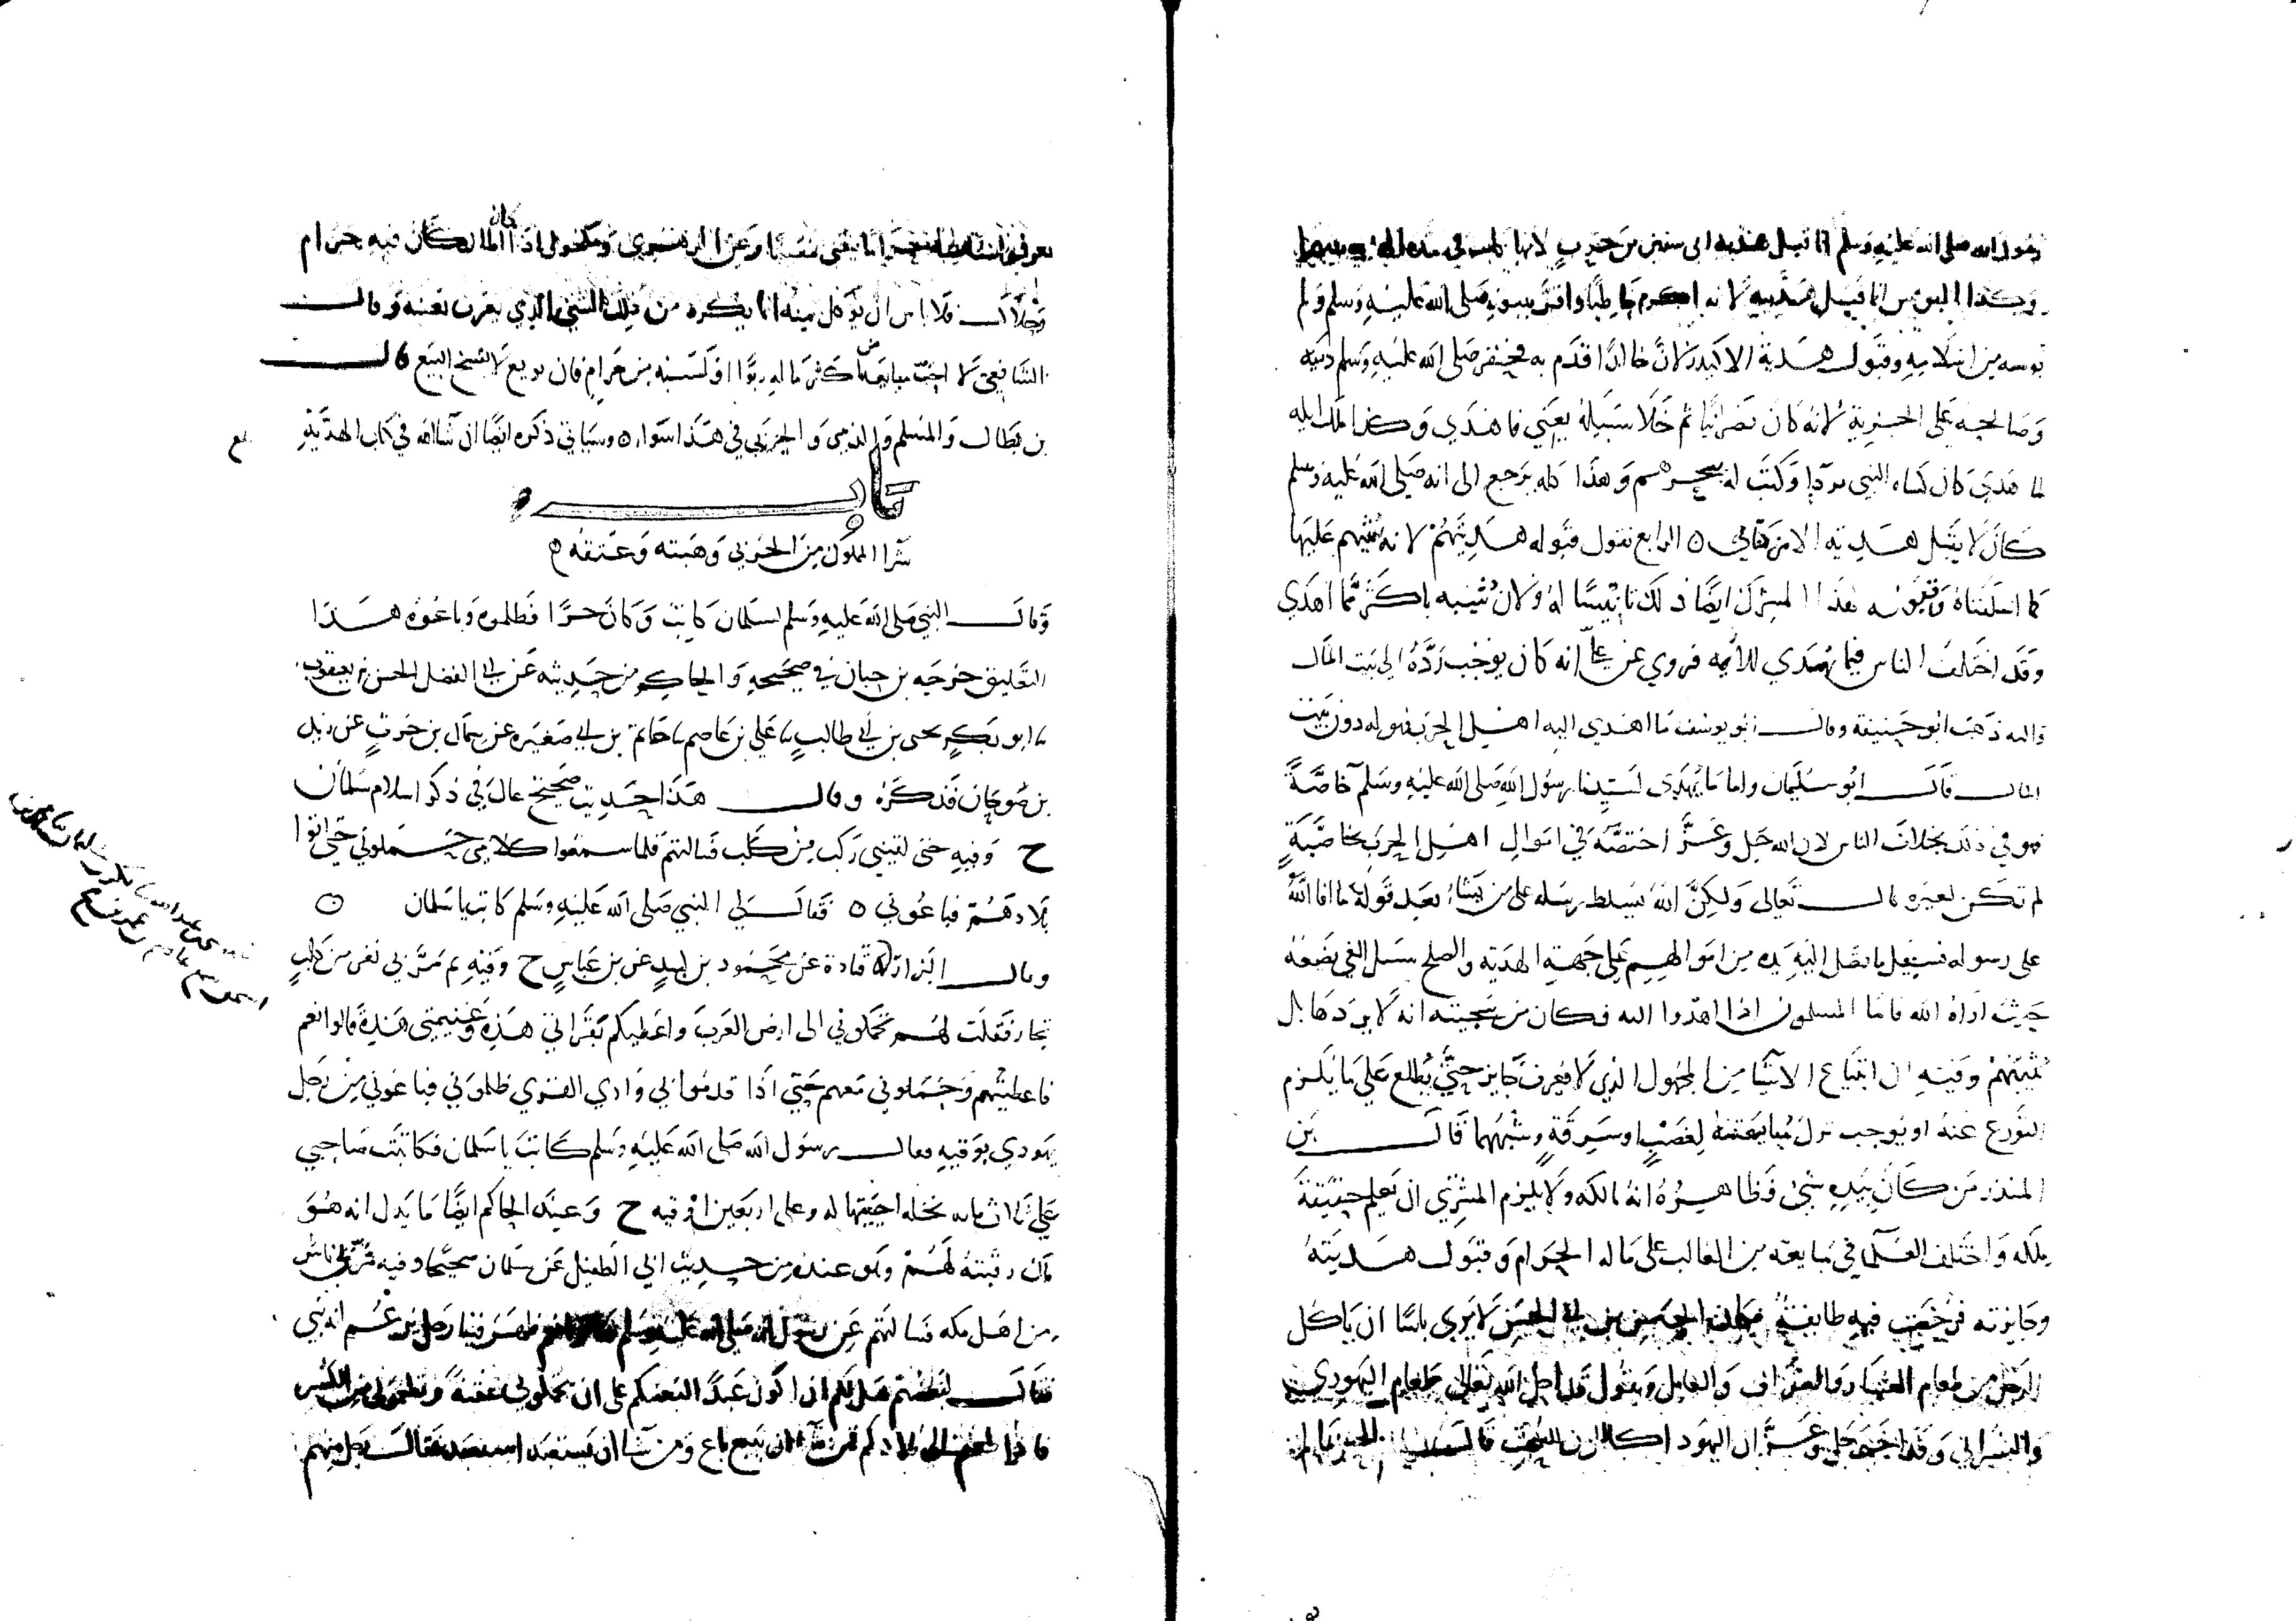 رسول الله صلى الله عليه وسلم انما قبل هدية ابى سفين من حرب لانها كانت في مدة
وكذا المقوقس انما قبل هديته لانه اكرم حاطبا واقر بنبوته صلى الله عليه وسلم ولم
يويسه من اسلامه وقبول هدية الاكيدر لان خالدا قدم به فحقن صلى الله عليه وسلم دمه
وصالحه على الجزية لانه كان نصرانيا ثم خلا سبيله يعني فاهدي وكذا ملك ايله
لما هدي كان كساه النبي بردا وكتب له ببحرهم وهذا كله يرجع الى انه صلى الله عليه وسلم
كان لا يقبل هدية الا من كتابي الرابع نقول قبوله هديتهم لانه يثيبهم عليها
كما اسلفناه وقبوله هذا المشرك ايضا ذلك تانيسا له ولان يثيبه باكثر مما اهدي
وقد اختلف الناس فيما يهدي للائمه فروي عن علي انه كان يوجب رده الى بيت المال
واليه ذهب ابو حنيفة وقال ابو يوسف ما اهدي اليه اهل الحرب فهو له دون بيت
المال قال ابو سليمان واما ما يهدى لسيدنا رسول الله صلى الله عليه وسلم خاصة
فهو في ذلك بخلاف الناس لان الله جل وعز اختصه في اموال اهل الحرب بخاصة
لم تكن لغيره قال تعالى ولكن الله يسلط رسله على من يشاء بعد قوله ما افا الله
على رسوله فسبيل ما يصل اليه يده من اموالهم على جهة الهدية والصلح سبيل الفي يضعه
حيث اراه الله فاما المسلمون اذا اهدوا اليه فكان من سجيته انه لا يردها بل
يثيبهم وفيه ان ابتياع الاشيا من المجهول الذي لا يعرف جايز حتى يطلع على ما يلزم
التورع عنه او يوجب ترك مبايعته لغصب او سرقة وشبههما قال بن
المنذر من كان بيده شي فظاهره انه مالكه ولا يلزم المشتري ان يعلم حقيقة
ملكه واختلف العلما في مبايعة من الغالب على ماله الحرام وقبول هديته
وجايزته فرخصت فيه طايفة فكان الحسن بن ابي الحسن لا يرى باسا ان ياكل
الرجل من طعام العشار والصراف والعامل ويقول قد احل الله تعالى طعام اليهودي
والنصراني وقد اخبر جل وعز ان اليهود اكالون للسحت قال
يعرفونه وعن الزهري ومكحول اذا كان المال كان فيه حرام
وحلال فلا باس ان يوكل منه انما يكره من ذلك الشي الذي يعرف بعينه وقال
الشافعي لا احب مبايعة من اكثر ماله ربوا او كسبه من حرام فان بويع لا يفسخ البيع قال
بن بطال والمسلم والذمي والحربي في هذا سواء وسياتي ذكره ايضا ان شا الله في كتاب الهدية
باب
شرا المملوك من الحربي وهبته وعتقه
وقال النبي صلى الله عليه وسلم لسلمان كاتب وكان حرا فظلموه وباعوه هذا
التعليق خرجه بن حبان في صحيحه والحاكم من حديثه عن ابي الفضل الحسن بن يعقوب
ثنا ابو بكر يحيى بن ابي طالب ثنا علي بن عاصم ثنا حاتم بن ابي صغيره عن سماك بن حرب عن زيد
بن صوحان فذكره وقال هذا حديث صحيح عال في ذكر اسلام سلمان
ح وفيه حتى لقيني ركب من كلب فسالتهم فلما سمعوا كلامي حملوني حتى اتوا
بلادهم فباعوني فقال لي النبي صلى الله عليه وسلم كاتب يا سلمان
وقال قتادة عن محمود بن لبيد عن بن عباس ح وفيه ثم مر بي نفر من كلب
تجار فقلت لهم تحملوني الى ارض العرب واعطيكم بقراتي هذه وغنيمتي هذه قالوا نعم
فاعطيتهم وحملوني معهم حتى اذا قدموا بي وادي القرى ظلموني فباعوني من رجل
يهودي بوقيه فقال رسول الله صلى الله عليه وسلم كاتب يا سلمان فكاتبت صاحبي
على ثلاث مايه نخله احييتها له وعلى اربعين اوقيه ح وعند الحاكم ايضا ما يدل انه هو
ملك رقبته لهم وهو عنده من حديث ابي الطفيل عن سلمان صحيحا وفيه فمر بي ناس
من اهل مكه فسالتهم عن رسول الله صلى الله عليه وسلم ظهر فينا رجل يزعم انه نبي
فقال لبعضهم هل لكم ان اكون عبدا لبعضكم على ان تحملوني عقبة وتطعموني من الكسر
فاذا بلغتم الى بلادكم فمن شا ان يبيع باع ومن شا ان يستعبد استعبد فقال رجل منهم